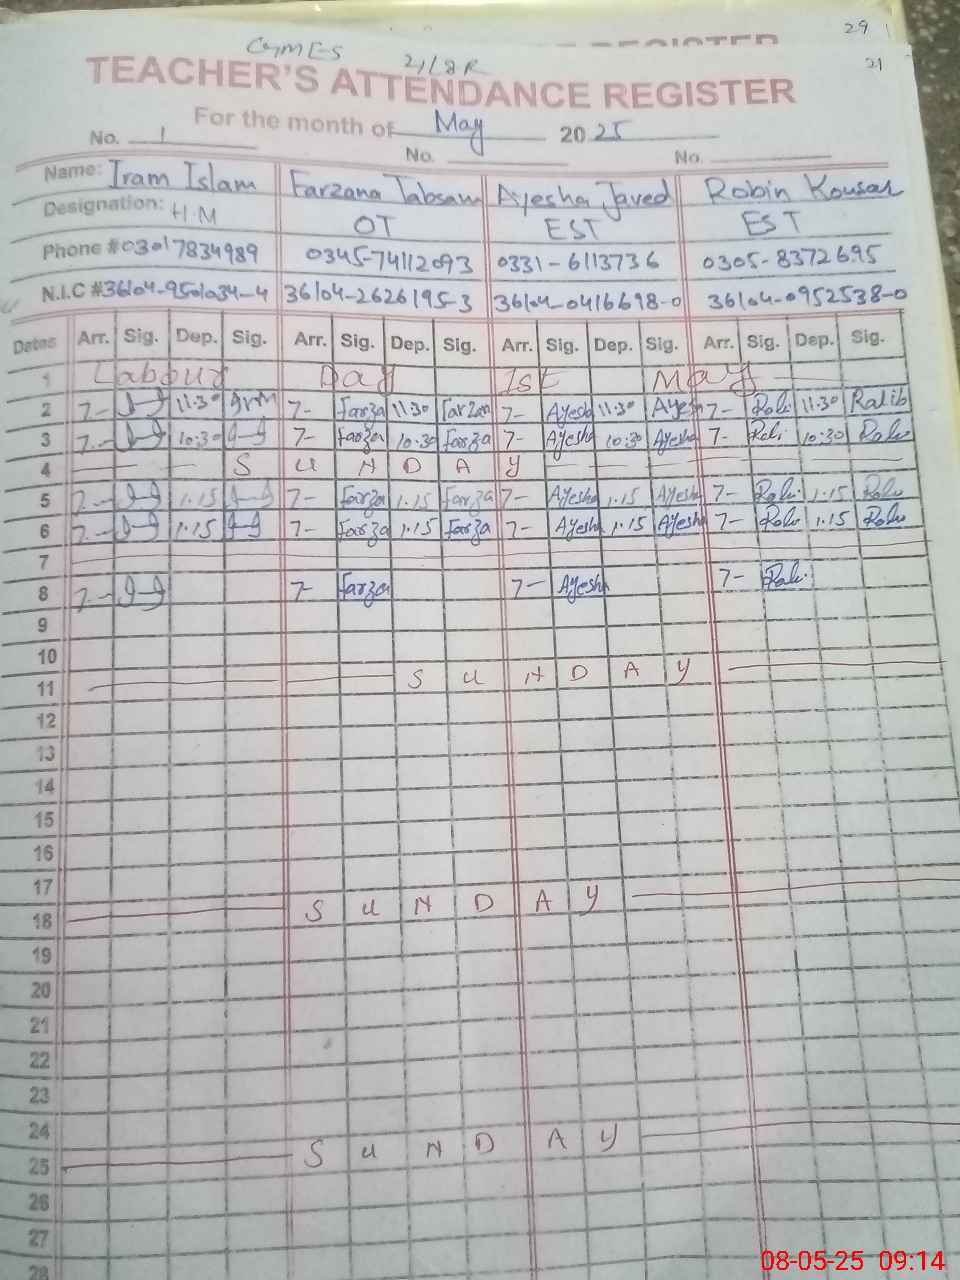 29
GMES 21/8R
21
TEACHER'S ATTENDANCE REGISTER
For the month of May 2025
No. 1 No. No.
Name: Iram Islam Farzana Tabsam Ayesha Javed Robin Kousar
Designation: H.M OT EST EST
Phone # 03017834989 0345-74112093 0331-6113736 0305-8372695
N.I.C # 36104-9501034-4 36104-2626195-3 36104-0416698-0 36104-0952538-0
Dates Arr. Sig. Dep. Sig. Arr. Sig. Dep. Sig. Arr. Sig. Dep. Sig. Arr. Sig. Dep. Sig.
1 Labour Day 1st May
2 7- 11:30 7- Farza 11:30 Farzan 7- Ayesh 11:30 Ayesh 7- 11:30
3 7- 10:30 7- Farza 10:30 Farza 7- Ayesha 10:30 Ayesha 7- 10:30
4 S U N D A Y
5 7- 1.15 7- Farza 1.15 Farza 7- Ayesha 1.15 Ayesha 7- 1.15
6 7- 1.15 7- Farza 1.15 Farza 7- Ayesha 1.15 Ayesha 7- 1.15
7
8 7- 7- Farza 7- Ayesha 7-
9
10
11 S U N D A Y
12
13
14
15
16
17
18 S U N D A Y
19
20
21
22
23
24
25 S U N D A Y
26
27
28
08-05-25 09:14